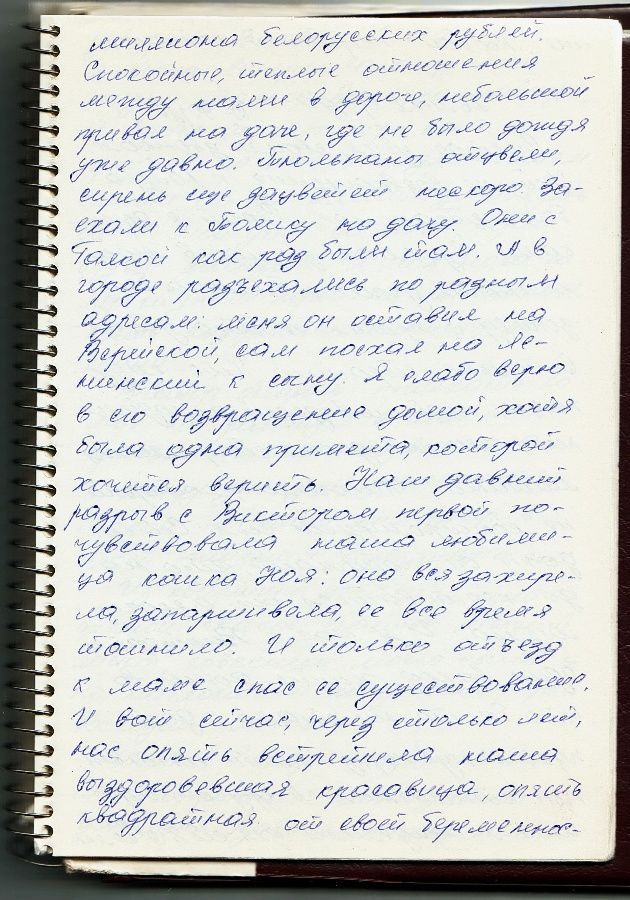 миллиона белорусских рублей.
Спокойные, теплые отношения
между нами в дороге, небольшой
привал на даче, где не было дождя
уже давно. Тюльпаны отцвели,
сирень еще зацветет нескоро. За-
ехали к Толику на дачу. Они с
Галкой как раз были там. А в
городе разъехались по разным
адресам: меня он оставил на
Верейской, сам поехал на Ле-
нинский к сыну. Я слабо верю
в его возвращение домой, хотя
была одна примета, которой
хочется верить. Наш давний
разрыв с Виктором первой по-
чувствовала наша любими-
ца кошка Ноя: она вся захире-
ла, запаршивела, ее все время
тошнило. И только отъезд
к маме спас ее существование.
И вот сейчас, через столько лет,
нас опять встретила наша
выздоровевшая красавица, опять
квадратная от своей беременнос-